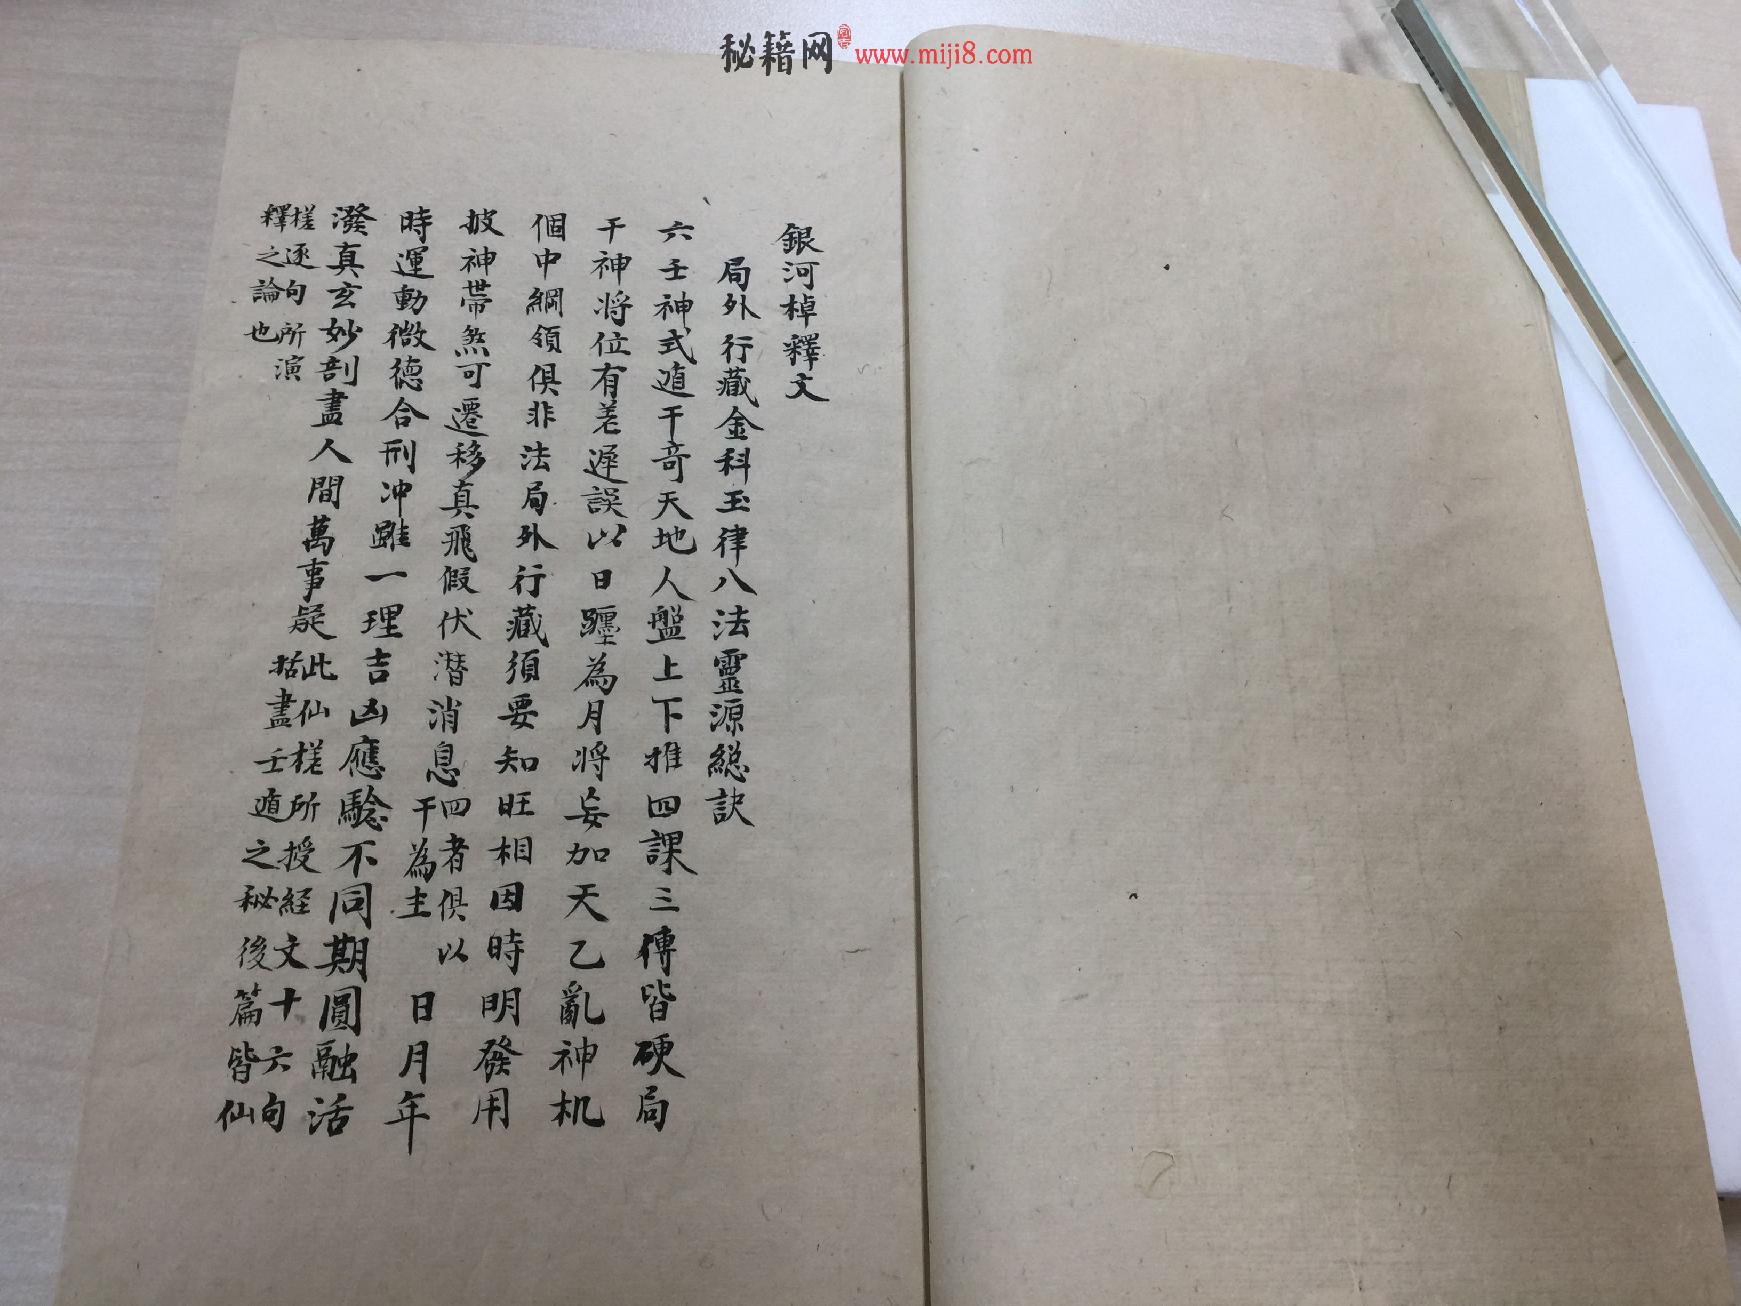 秘籍网 www.miji8.com
銀河棹釋文
局外行藏金科玉律八法靈源総訣
六壬神式遁干竒天地人盤上下推四課三傳皆硬局
干神将位有差遲誤以日躔為月将妄加天乙亂神机
個中綱領俱非法局外行藏須要知旺相因時明發用
披神帯煞可遷移真飛假伏潛消息四者俱以干為主日月年
時運動微德合刑冲雖一理吉凶應驗不同期圓融活
潑真玄妙剖盡人間萬事疑此仙槎所授経文十六句括盡壬遁之秘後篇皆仙
槎逐句所演釋之論也